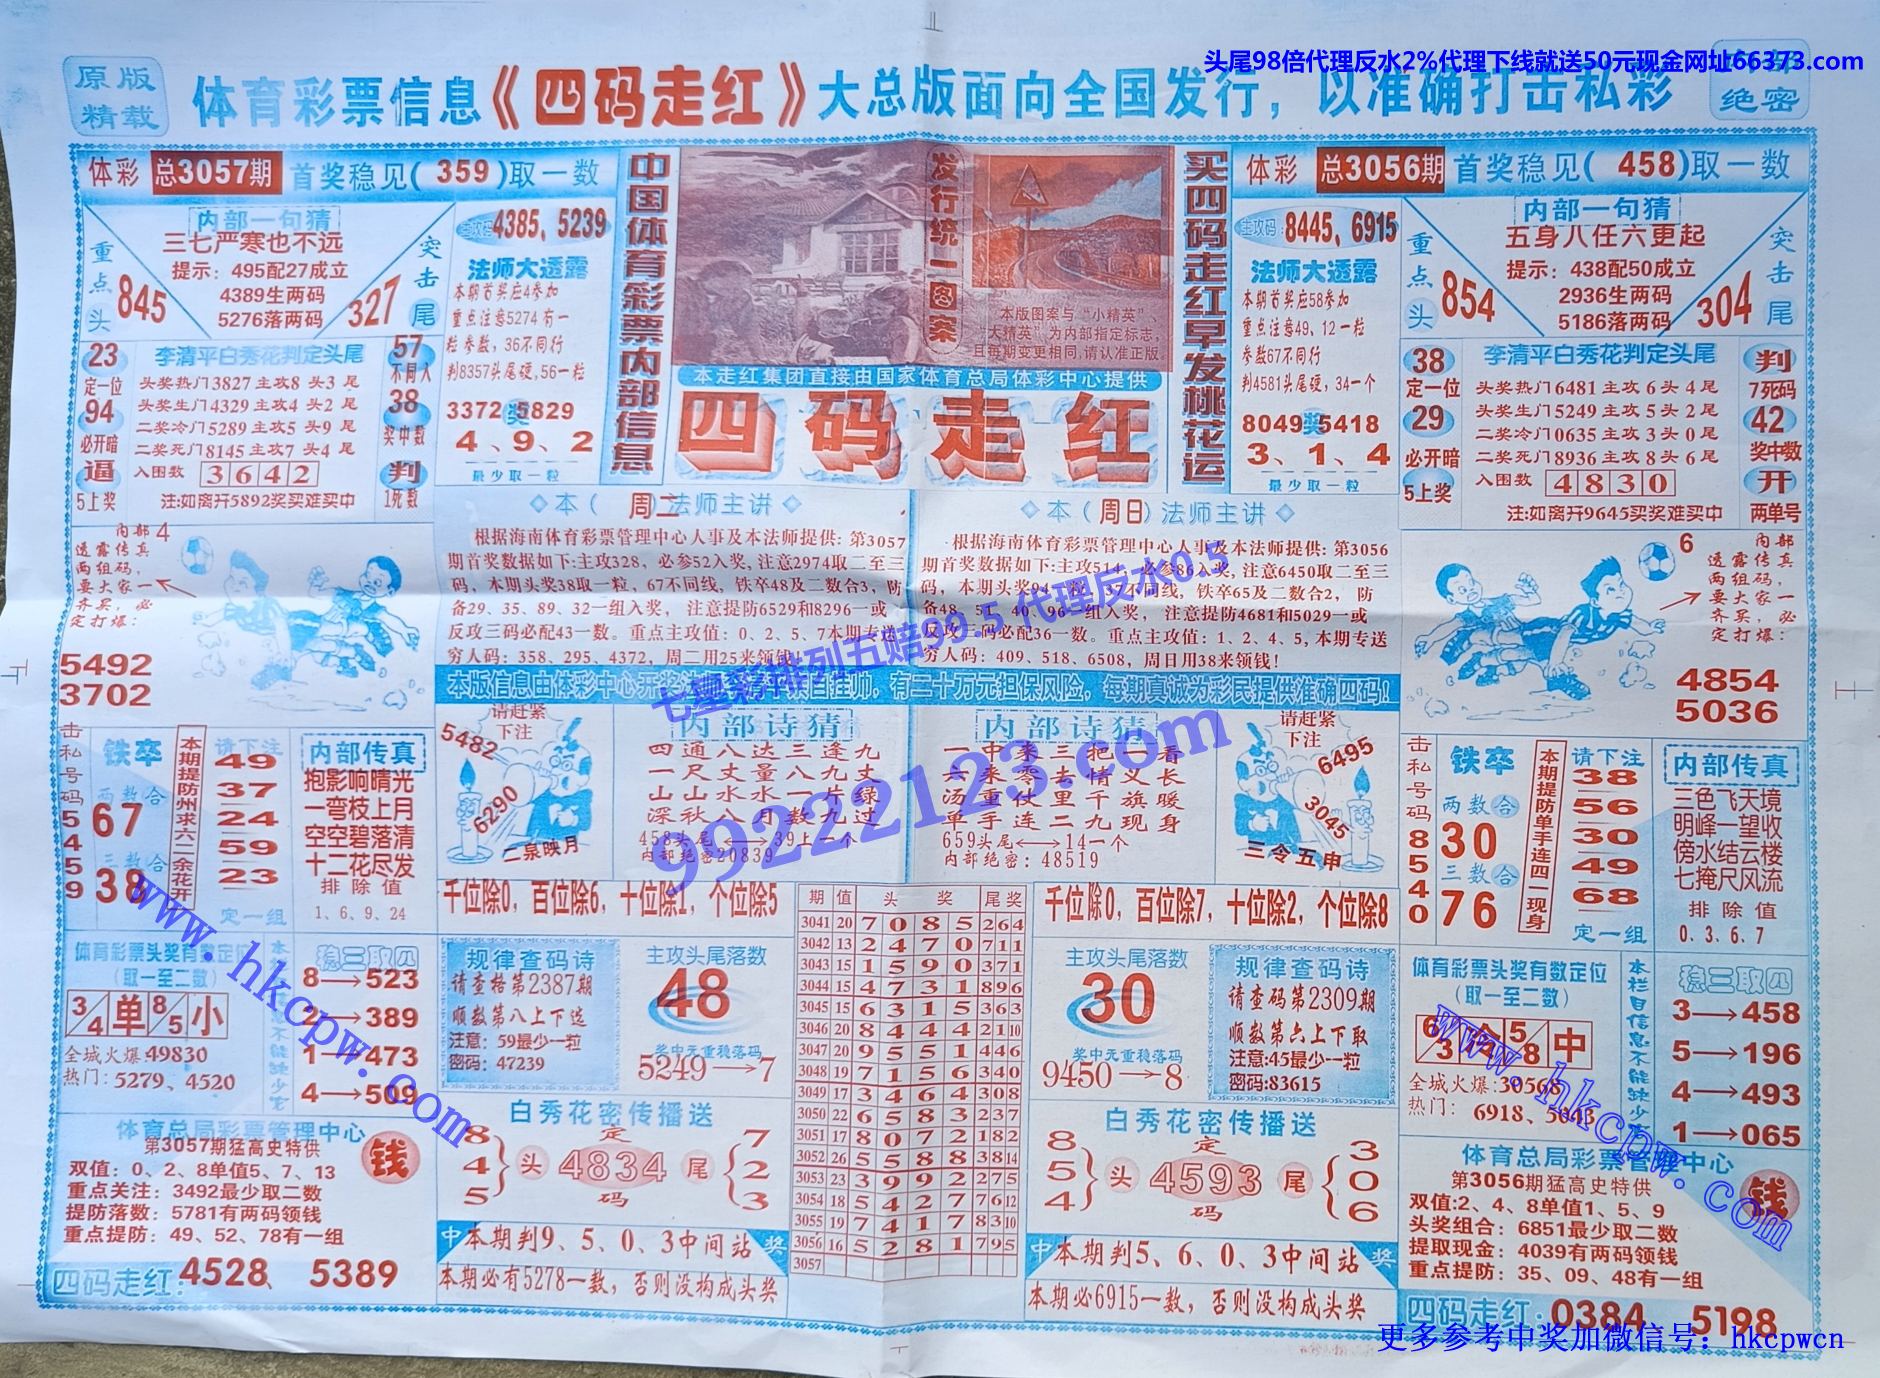 头尾98倍代理反水2%代理下线就送50元现金网址66373.com
原版
精载
体育彩票信息《四码走红》大总版面向全国发行，以准确打击私彩
绝密
体彩 总3057期 首奖稳见(359)取一数
内部一句猜
三七严寒也不远
提示：495配27成立
4389生两码
5276落两码
重点头
845
突击尾
327
主攻码
4385、5239
法师大透露
本期首奖应4参加
重点注意5274有一
粒参数，36不同行
判8357头尾硬,56一粒
3372奖5829
4、9、2
最少取一粒
23
定一位
94
必开暗
逼
5上奖
李清平白秀花判定头尾
头奖热门3827主攻8头3尾
头奖生门4329主攻4头2尾
二奖冷门5289主攻5头9尾
二奖死门8145主攻7头4尾
入围数 3642
注:如离开5892奖买难买中
57
不同入
38
奖中数
判
1死数
中国体育彩票内部信息
发行统一图案
本版图案与“小精英”、
“大精英”为内部指定标志，
且每期变更相同,请认准正版。
本走红集团直接由国家体育总局体彩中心提供
四码走红
买四码走红早发桃花运
体彩 总3056期 首奖稳见(458)取一数
主攻码
8445、6915
法师大透露
本期首奖应58参加
重点注意49、12一粒
参数67不同行
判4581头尾硬,34一个
8049奖5418
3、1、4
最少取一粒
内部一句猜
五身八任六更起
提示：438配50成立
2936生两码
5186落两码
重点头
854
突击尾
304
38
定一位
29
必开暗
5上奖
李清平白秀花判定头尾
头奖热门6481主攻6头4尾
头奖生门5249主攻5头2尾
二奖冷门0635主攻3头0尾
二奖死门8936主攻8头6尾
入围数 4830
注:如离开9645买奖难买中
判
7死码
42
奖中数
开
两单号
内部4
透露传真
两组码，
要大家一
齐买，必
定打爆：
5492
3702
本（周二）法师主讲
根据海南体育彩票管理中心人事及本法师提供：第3057
期首奖数据如下:主攻328，必参52入奖,注意2974取二至三
码，本期头奖38取一粒，67不同线，铁卒48及二数合3，防
备29、35、89、32一组入奖，注意提防6529和8296一或
反攻三码必配43一数。重点主攻值：0、2、5、7本期专送
穷人码：358、295、4372，周二用25来领钱!
本（周日）法师主讲
根据海南体育彩票管理中心人事及本法师提供：第3056
期首奖数据如下:主攻514，必参86入奖,注意6450取二至三
码，本期头奖94一粒，37不同线，铁卒65及二数合2，防
备48、51、40、96一组入奖，注意提防4681和5029一或
反攻三码必配36一数。重点主攻值：1、2、4、5,本期专送
穷人码：409、518、6508，周日用38来领钱!
七星彩排列五赔99.5 代理反水0.5
99222123.com
内部
6
透露传真
两组码，
要大家一
齐买，必
定打爆：
4854
5036
本版信息由体彩中心开奖
有二十万元担保风险，每期真诚为彩民提供准确四码!
击私号码54559
铁卒
两数合
67
三数合
38
本期提防州求六二余花开
请下注
49
37
24
59
23
定一组
内部传真
抱影响晴光
一弯枝上月
空空碧落清
十二花尽发
排除值
1、6、9、24
请赶紧
下注
5482
6290
二泉映月
内部诗猜
四通八达三逢九
一尺丈量八九丈
山山水水一片绿
深秋八月数九过
458头尾⟷39上一个
内部绝密20839
内部诗猜
一中来三把一看
六来零去情义长
汤重仗里千旗暖
单手连二九现身
659头尾⟷14一个
内部绝密：48519
请赶紧
下注
6495
3045
三令五申
击私号码85540
铁卒
两数合
30
三数合
76
本期提防单手连四一现身
请下注
38
56
30
49
68
定一组
内部传真
三色飞天境
明峰一望收
傍水结云楼
七掩尺风流
排除值
0、3、6、7
千位除0，百位除6，十位除1，个位除5
千位除0，百位除7，十位除2，个位除8
期 值 头奖 尾奖
3041 20 7085 264
3042 13 2470 711
3043 15 1590 371
3044 15 4731 896
3045 15 6315 363
3046 20 8444 2110
3047 20 9551 446
3048 19 7156 340
3049 17 3464 308
3050 22 6583 237
3051 17 8072 182
3052 26 5588 3814
3053 23 3992 275
3054 18 5427 7612
3055 19 7417 8310
3056 16 5281 795
3057
体育彩票头奖有数定位
(取一至二数)
3/4 单 8/5 小
全城火爆49830
热门：5279、4520
稳三取四
8→523
2→389
1→473
4→509
规律查码诗
请查格第2387期
顺数第八上下选
注意：59最少一粒
密码：47239
主攻头尾落数
48
奖中元重稳落码
5249→7
主攻头尾落数
30
奖中元重稳落码
9450→8
规律查码诗
请查码第2309期
顺数第六上下取
注意:45最少一粒
密码:83615
体育彩票头奖有数定位
(取一至二数)
中
全城火爆:30568
热门：6918、5043
本栏目信息不能缺少
稳三取四
3→458
5→196
4→493
1→065
体育总局彩票管理中心
第3057期猛高史特供
钱
双值：0、2、8单值5、7、13
重点关注：3492最少取二数
提防落数：5781有两码领钱
重点提防：49、52、78有一组
四码走红：4528、5389
白秀花密传播送
8
4
5
头
定
4834
码
尾
7
2
3
中 本期判9、5、0、3中间站 奖
本期必有5278一数，否则没构成头奖
白秀花密传播送
8
5
4
头
定
4593
码
尾
3
0
6
中 本期判5、6、0、3中间站 奖
本期必6915一数，否则没构成头奖
体育总局彩票管理中心
第3056期猛高史特供
钱
双值:2、4、8单值1、5、9
头奖组合：6851最少取二数
提取现金：4039有两码领钱
重点提防：35、09、48有一组
四码走红：0384、5198
www.hkcpw.com
www.hkcpw.com
更多参考中奖加微信号：hkcpwcn